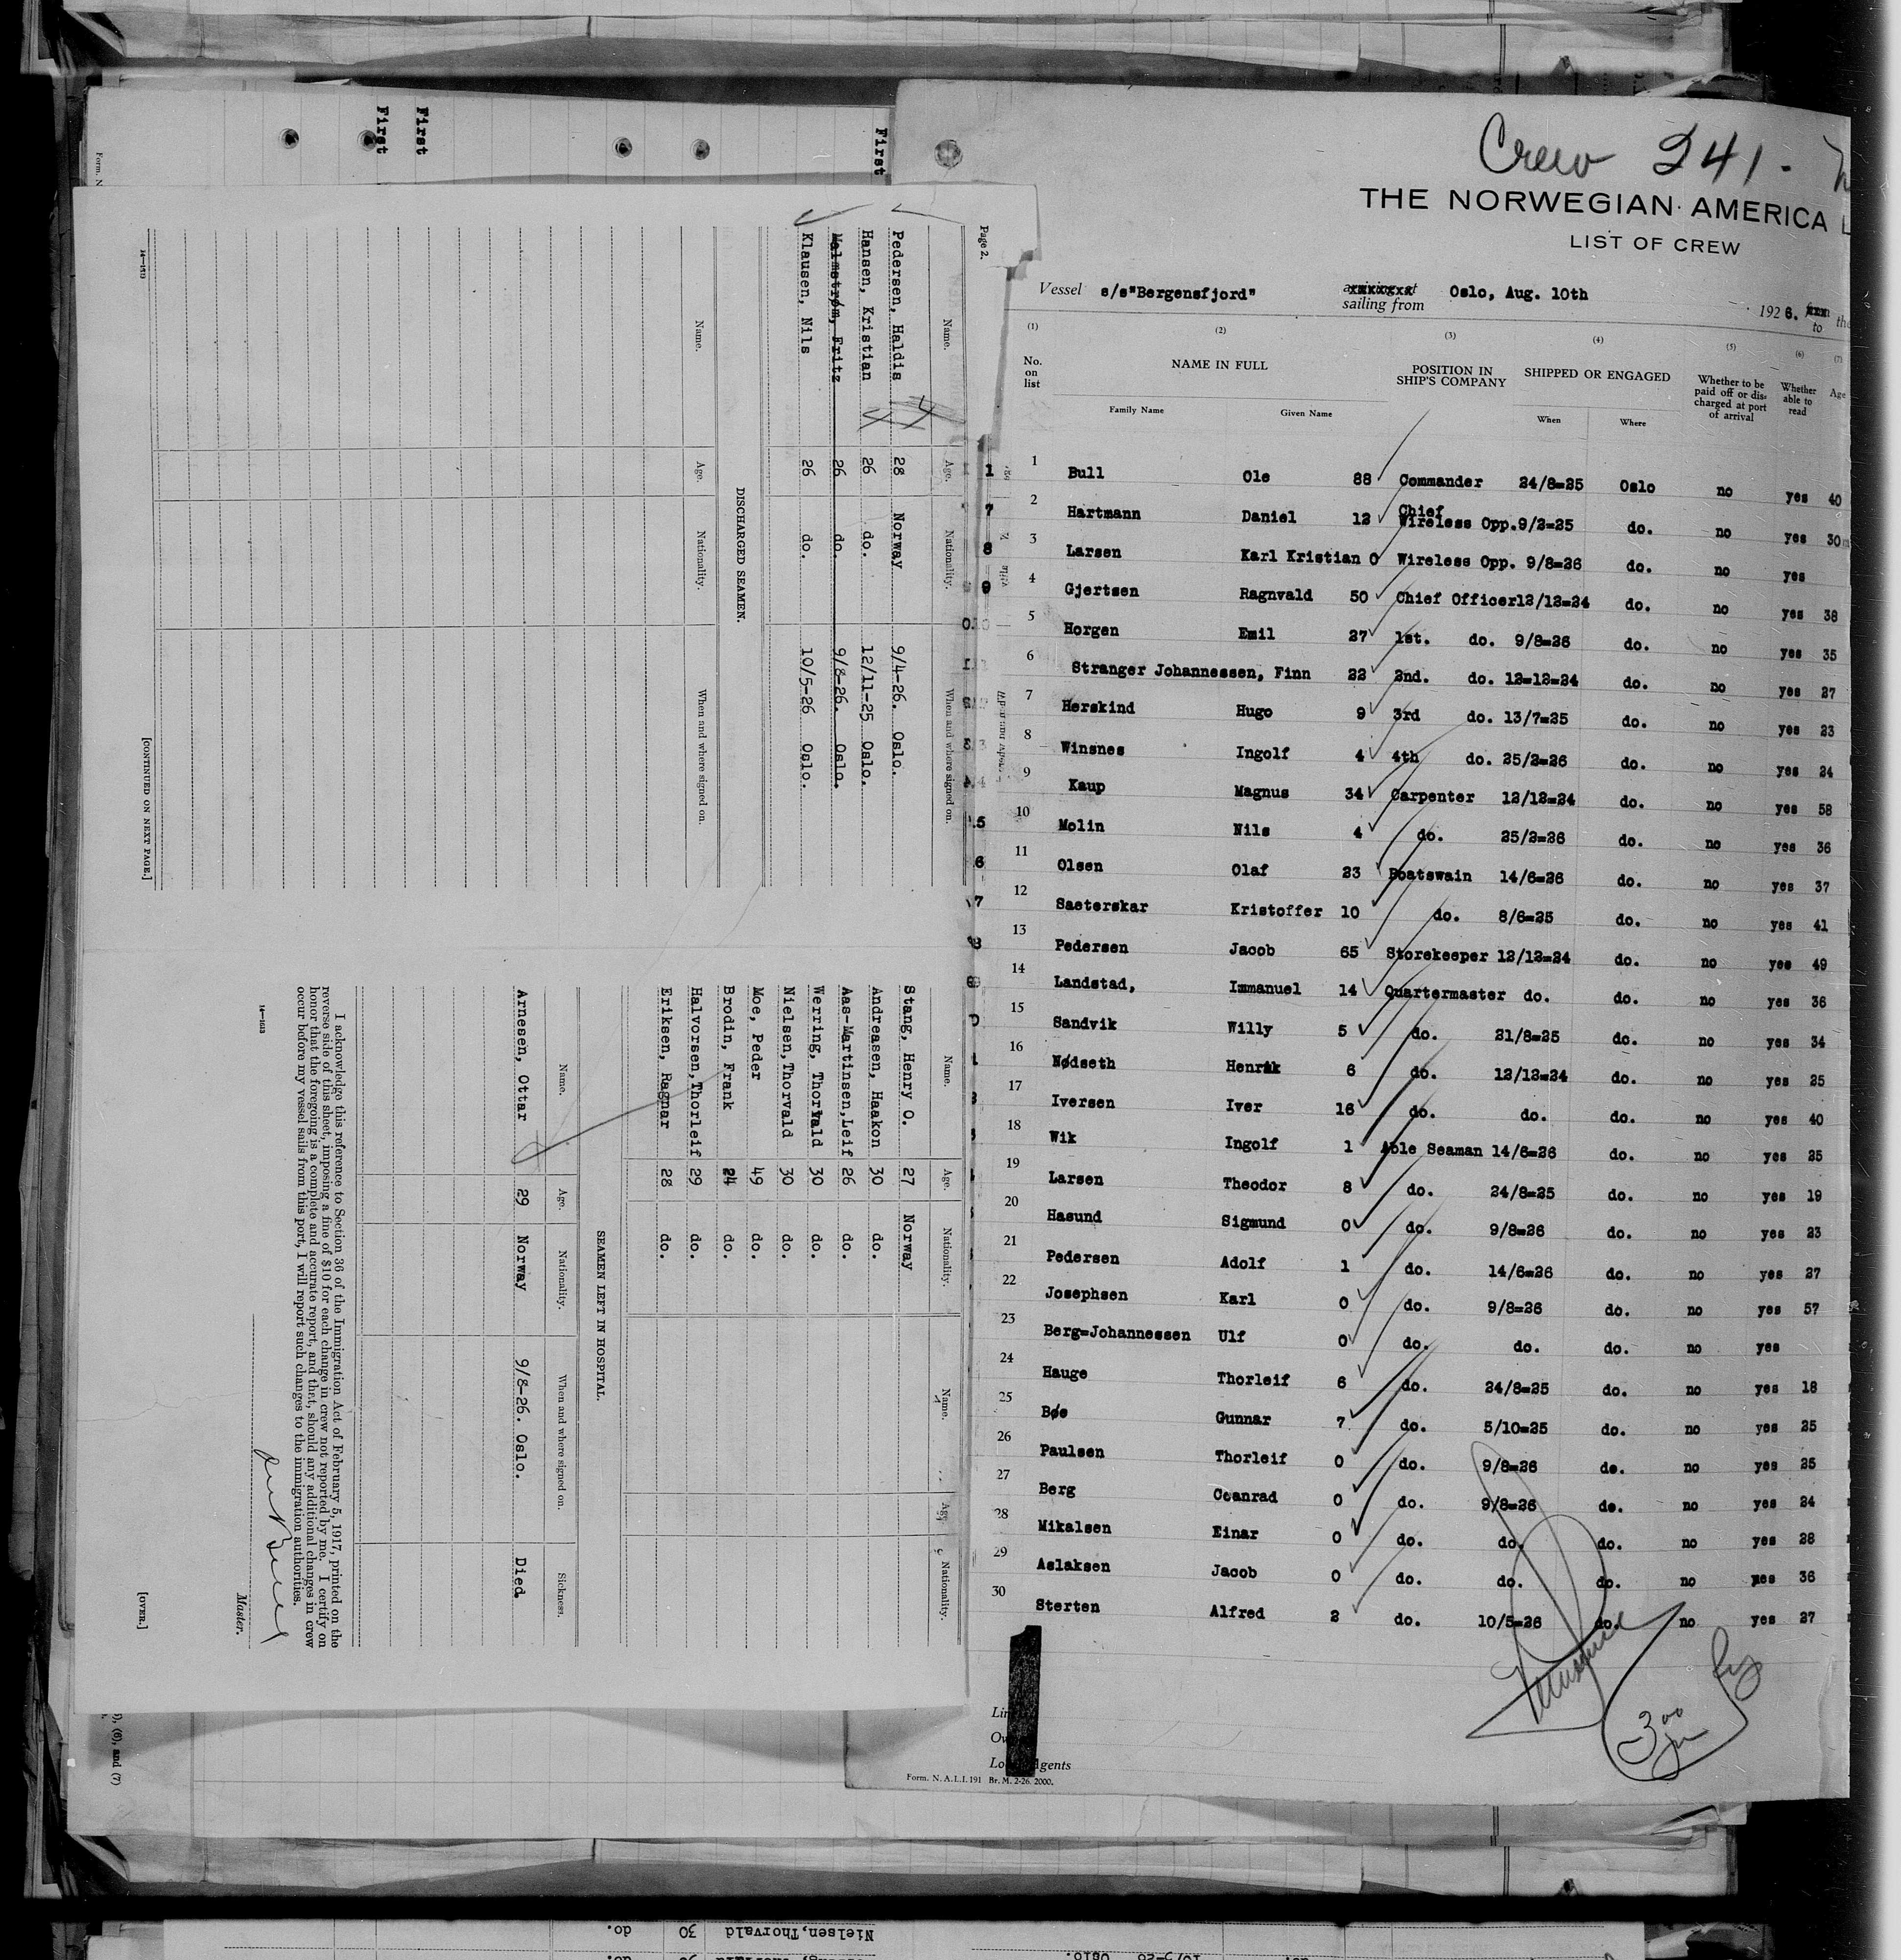 Crew 241.
THE NORWEGIAN AMERICA
LIST OF CREW
Vessel s/s"Bergensfjord" sailing from Oslo, Aug. 10th 1926. to the
(1) (2) (3) (4) (5) (6) (7)
No. on list NAME IN FULL POSITION IN SHIP'S COMPANY SHIPPED OR ENGAGED Whether to be paid off or discharged at port of arrival Whether able to read Age
Family Name Given Name When Where
1 Bull Ole 88 Commander 24/8-25 Oslo no yes 40
2 Hartmann Daniel 12 Chief Wireless Opp. 9/2-25 do. no yes 30
3 Larsen Karl Kristian 0 Wireless Opp. 9/8-26 do. no yes
4 Gjertsen Ragnvald 50 Chief Officer 12/12-24 do. no yes 38
5 Horgen Emil 27 1st. do. 9/8-26 do. no yes 35
6 Stranger Johannessen, Finn 22 2nd. do. 12-12-24 do. no yes 27
7 Herskind Hugo 9 3rd do. 13/7-25 do. no yes 23
8 Winsnes Ingolf 4 4th do. 25/2-26 do. no yes 24
9 Kaup Magnus 34 Carpenter 12/12-24 do. no yes 58
10 Molin Nils 4 do. 25/2-26 do. no yes 36
11 Olsen Olaf 23 Boatswain 14/6-26 do. no yes 37
12 Saeterskar Kristoffer 10 do. 8/6-25 do. no yes 41
13 Pedersen Jacob 65 Storekeeper 12/12-24 do. no yes 49
14 Landstad, Immanuel 14 Quartermaster do. do. no yes 36
15 Sandvik Willy 5 do. 21/8-25 do. no yes 34
16 Nødseth Henrik 6 do. 12/12-24 do. no yes 25
17 Iversen Iver 16 do. do. do. no yes 40
18 Wik Ingolf 1 Able Seaman 14/6-26 do. no yes 25
19 Larsen Theodor 8 do. 24/8-25 do. no yes 19
20 Hasund Sigmund 0 do. 9/8-26 do. no yes 23
21 Pedersen Adolf 1 do. 14/6-26 do. no yes 27
22 Josephsen Karl 0 do. 9/8-26 do. no yes 57
23 Berg-Johannessen Ulf 0 do. do. do. no yes
24 Hauge Thorleif 6 do. 24/8-25 do. no yes 18
25 Bøe Gunnar 7 do. 5/10-25 do. no yes 25
26 Paulsen Thorleif 0 do. 9/8-26 do. no yes 25
27 Berg Conrad 0 do. 9/8-26 do. no yes 24
28 Mikalsen Einar 0 do. do. do. no yes 28
29 Aslaksen Jacob 0 do. do. do. no yes 36
30 Sterten Alfred 2 do. 10/5-26 do. no yes 27
Agents
Form. N. A. L. I. 191 Br. M. 2-26. 2000.
First
First
First
Form. N
Page 2.
Name. Age. Nationality. When and where signed on.
Pedersen, Haldis 28 Norway 9/4-26. Oslo.
Hansen, Kristian 26 do. 12/11-25 Oslo.
Malmstrøm, Fritz 26 do. 9/8-26. Oslo.
Klausen, Nils 26 do. 10/5-26 Oslo.
DISCHARGED SEAMEN.
Name. Age. Nationality. When and where signed on.
[CONTINUED ON NEXT PAGE.]
Name. Age. Nationality. Name. Age. Nationality.
Stang, Henry O. 27 Norway
Andreasen, Haakon 30 do.
Aas-Martinsen, Leif 26 do.
Werring, Thorvald 30 do.
Nielsen, Thorvald 30 do.
Moe, Peder 49 do.
Brodin, Frank 24 do.
Halvorsen, Thorleif 29 do.
Eriksen, Ragnar 28 do.
SEAMEN LEFT IN HOSPITAL.
Name. Age. Nationality. When and where signed on. Sickness.
Arnesen, Ottar 29 Norway 9/8-26. Oslo. Died.
I acknowledge this reference to Section 36 of the Immigration Act of February 5, 1917, printed on the
reverse side of this sheet, imposing a fine of $10 for each change in crew not reported by me. I certify on
honor that the foregoing is a complete and accurate report, and that, should any additional changes in crew
occur before my vessel sails from this port, I will report such changes to the immigration authorities.
Master.
[OVER.]
(6), and (7)
Nielsen, Thorvald 30 do.